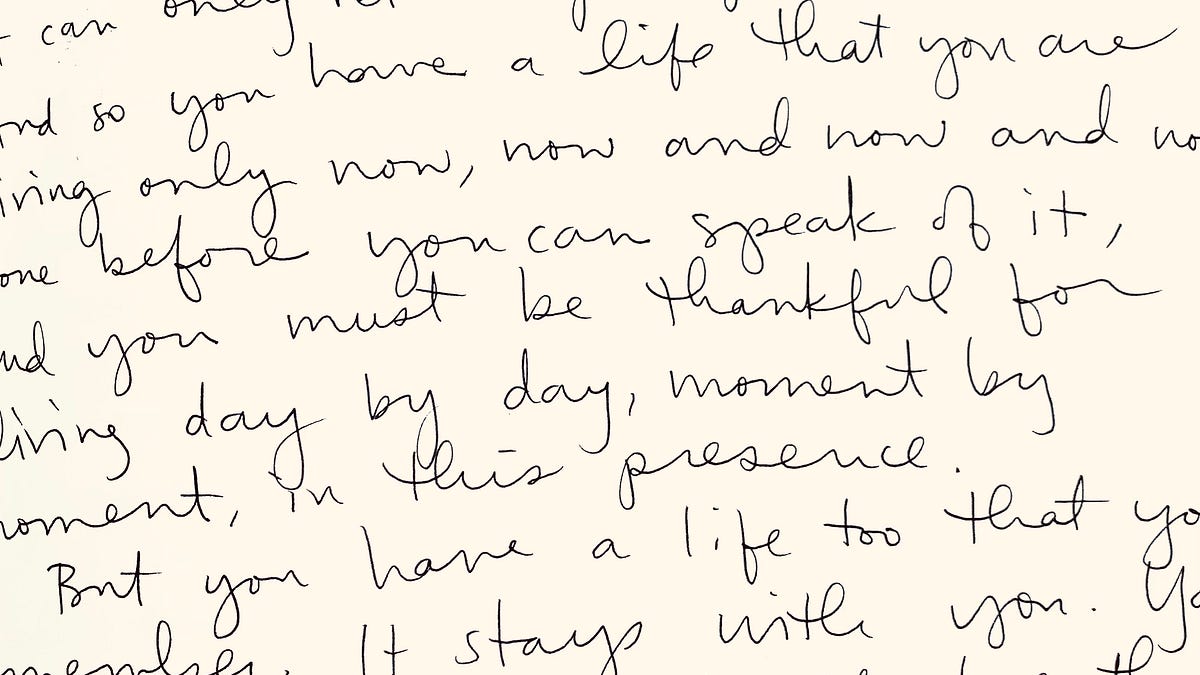 can only
and so you have a life that you are
living only now, now and now and no
one before you can speak of it,
nd you must be thankful for
living day by day, moment by
moment, in this presence.
But you have a life too that yo
remember. It stays with you. Yo